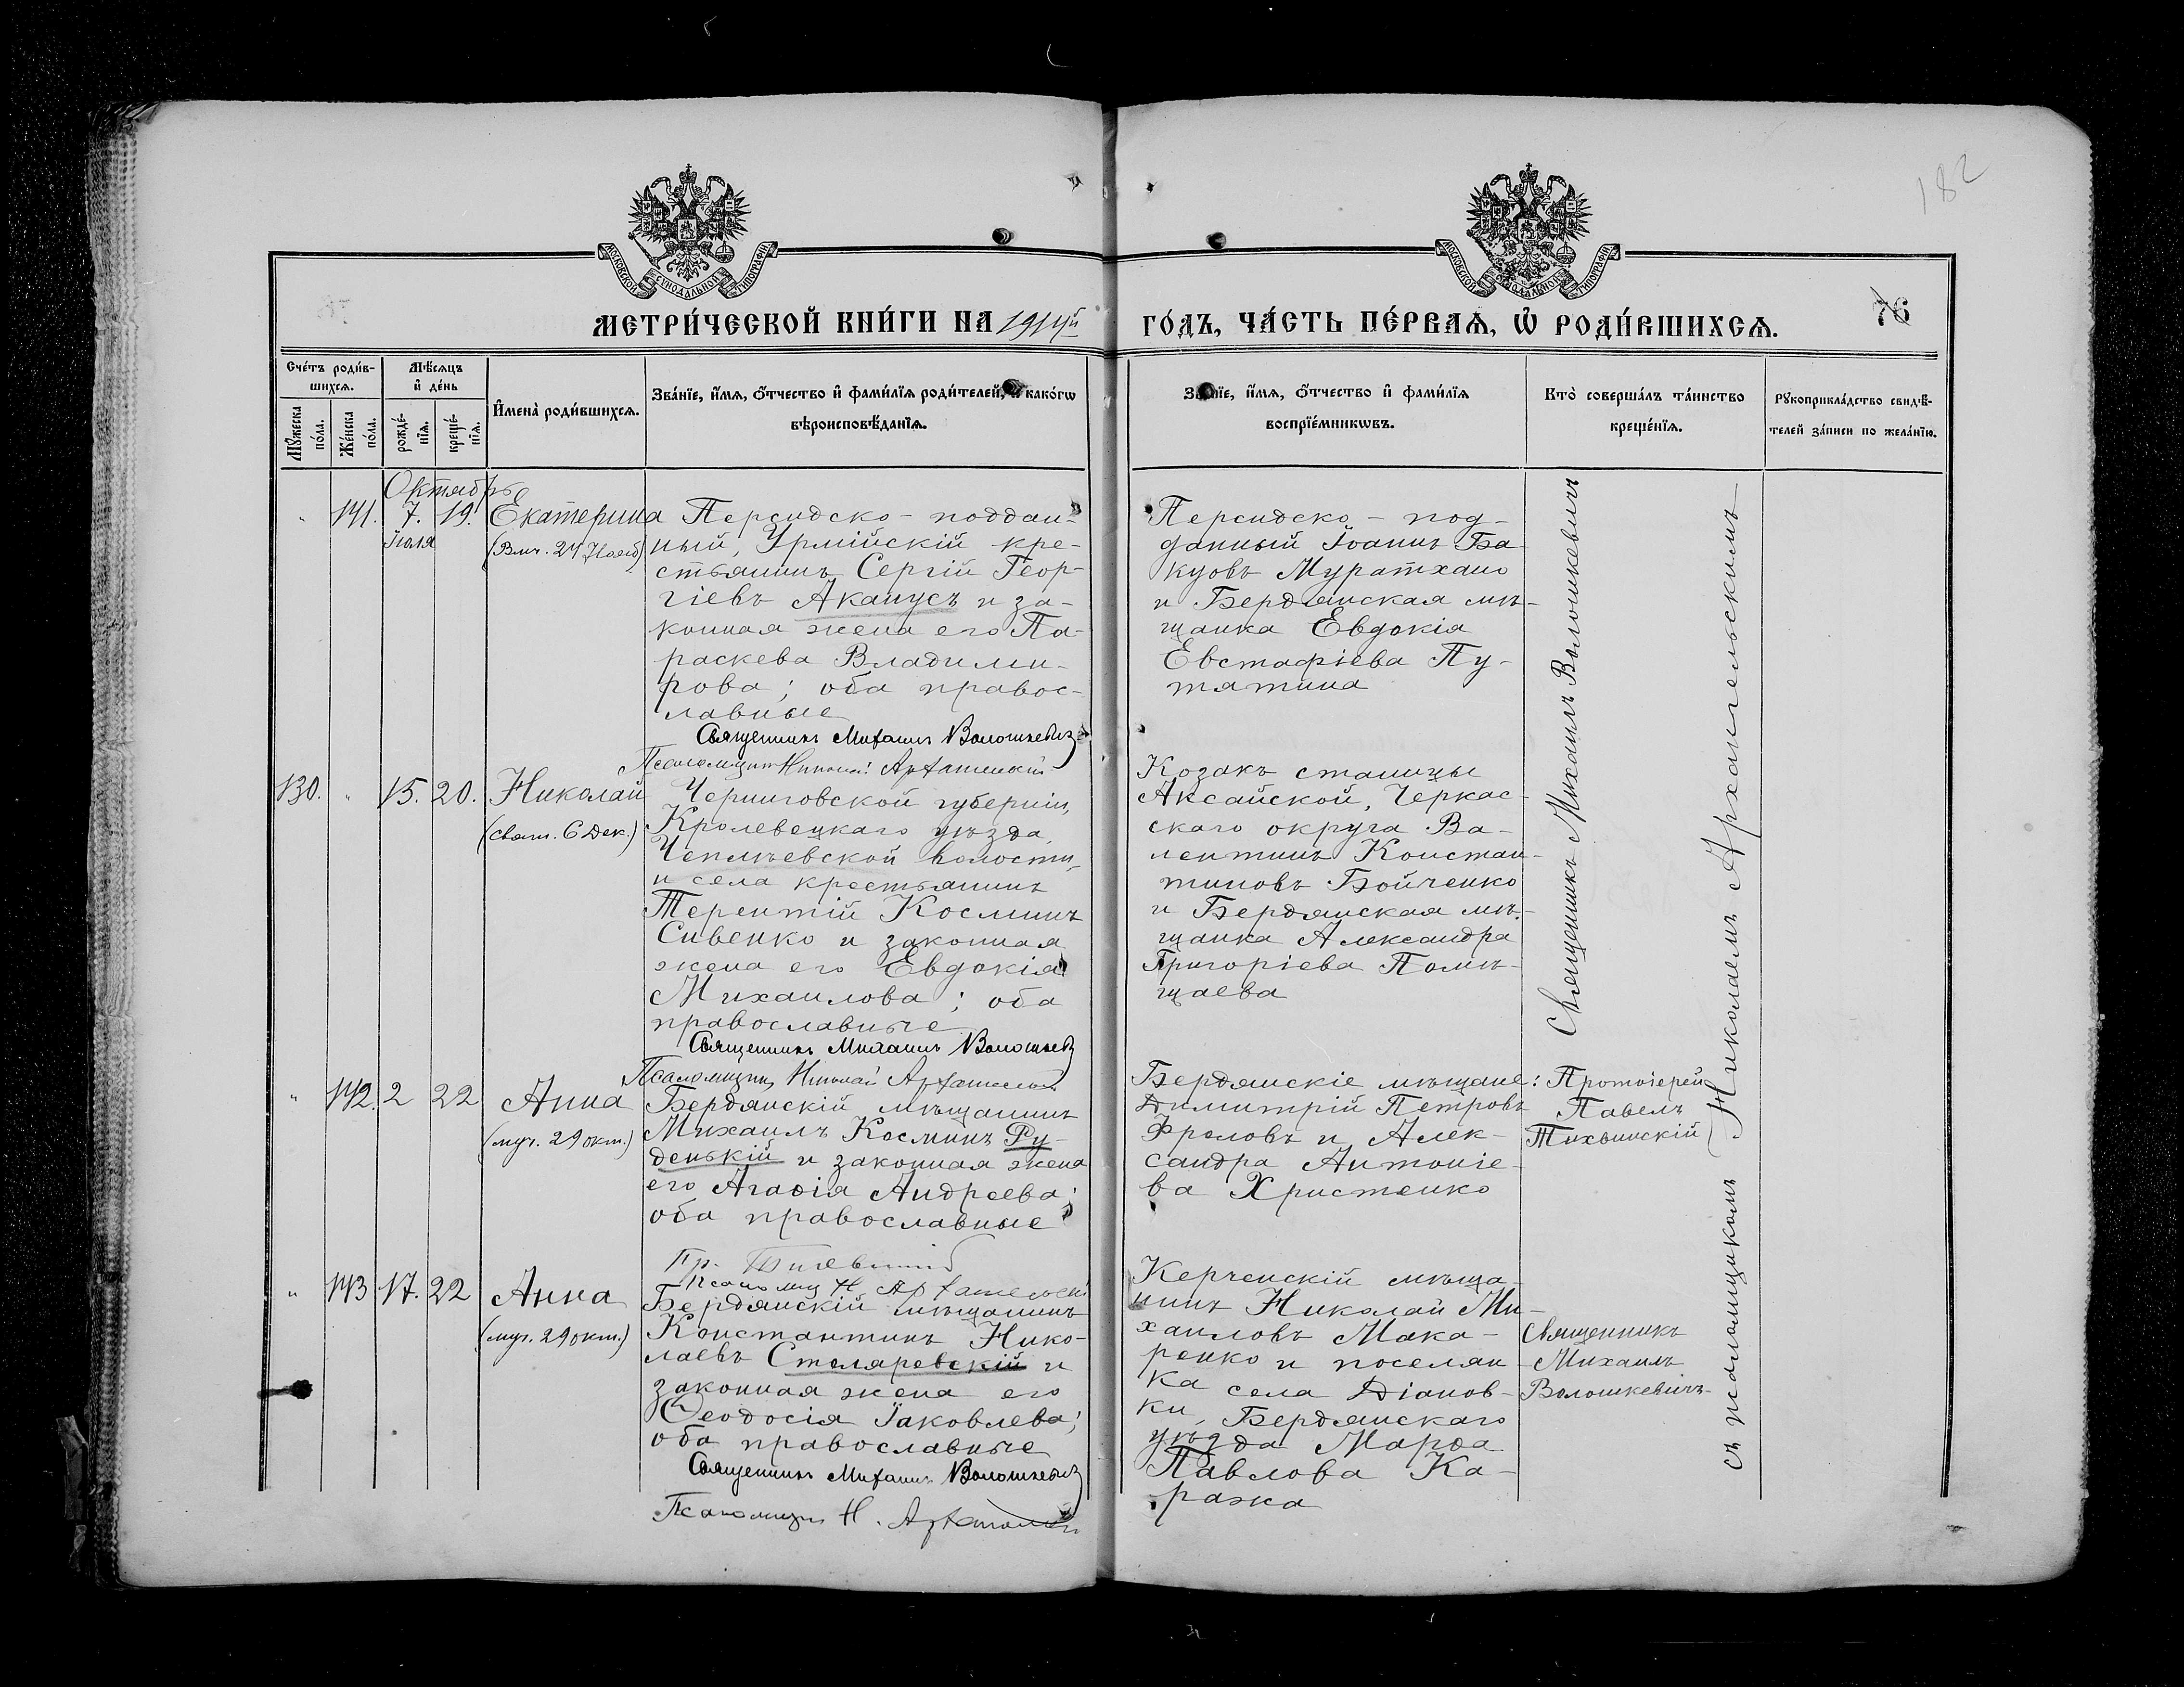 182
МОСКОВСКОЙ СѴНОДАЛЬНОЙ ТИПОГРАФІИ
МОСКОВСКОЙ СѴНОДАЛЬНОЙ ТИПОГРАФІИ
МЕТРИ́ЧЕСКОЙ КНИ́ГИ НА 1914й
ГО́ДЪ, ЧА́СТЬ ПЕ́РВАѦ, Ѡ҆ РОДИ́ВШИХСѦ.
76
Сче́тъ роди́в-
шихсѧ.
Мꙋ́жеска по́ла.
Же́нска по́ла.
Мѣ́сѧцъ
и҆ де́нь
рожде́-
нїѧ.
креще́-
нїѧ.
И҆мена̀ роди́вшихсѧ.
Зва́нїе, и҆́мѧ, ѻ҆́тчество и҆ фами́лїѧ роди́телей, и҆ како́гѡ
вѣроисповѣ́данїѧ.
Зва́нїе, и҆́мѧ, ѻ҆́тчество и҆ фами́лїѧ
воспрїе́мникѡвъ.
Кто̀ соверша́лъ та́инство
креще́нїѧ.
Рꙋкоприкла́дство свидѣ́-
телей за́писи по жела́нїю.
Октябрь
141. 7. 19. Екатерина
Іюля
(Влч. 24 Нояб)
Персидско-поддан-
ный, Урмійскій кре-
стьянинъ Сергій Геор-
гіевъ Аканусъ и за-
конная жена его Па-
раскева Владими-
рова; оба правос-
лавные
Священникъ Михаилъ Волошкевичъ
Псаломщикъ Николай Архангельскій
Персидско-под-
данный Іоаннъ Ба-
куовъ Муратхано
и Бердянская мѣ-
щанка Евдокія
Евстафіева Пу-
тятина
130. " 15. 20. Николай
(свят. 6 Дек.)
Черниговской губерніи,
Кролевецкаго уѣзда,
Чеплѣевской волости,
и села крестьянинъ
Терентій Косминъ
Сивенко и законная
жена его Евдокія
Михаилова; оба
православные
Священникъ Михаилъ Волошкевичъ
Псаломщикъ Николай Архангельскій
Козакъ станицы
Аксайской, Черкас-
скаго округа Ва-
лентинъ Констан-
тиновъ Бойченко
и Бердянская мѣ-
щанка Александра
Григоріева Помѣ-
щаева
Священникъ Михаилъ Волошкевичъ
" 142. 2 22 Анна
(муч. 29 окт.)
Бердянскій мѣщанинъ
Михаилъ Косминъ Ру-
денькій и законная жена
его Агаѳія Андреева;
оба православные
Псаломщ Н Архангельскій
Бердянскіе мѣщане:
Димитрій Петровъ
Фроловъ и Алек-
сандра Антоніе-
ва Христенко
Протоіерей
Павелъ
Тихвинскій
" 143 17. 22 Анна
(муч. 29 окт.)
Бердянскій мѣщанинъ
Константинъ Нико-
лаевъ Столяревскій и
законная жена его
Ѳеодосія Іаковлева;
оба православные
Священникъ Михаилъ Волошкевичъ
Псаломщикъ Н. Архангельскій
Керченскій мѣща-
нинъ Николай Ми-
хаиловъ Мака-
ренко и поселян-
ка села Діанов-
ки, Бердянскаго
уѣзда Марѳа
Павлова Ка-
ража
Священникъ
Михаилъ
Волошкевичъ
съ псаломщикомъ Николаемъ Архангельскимъ